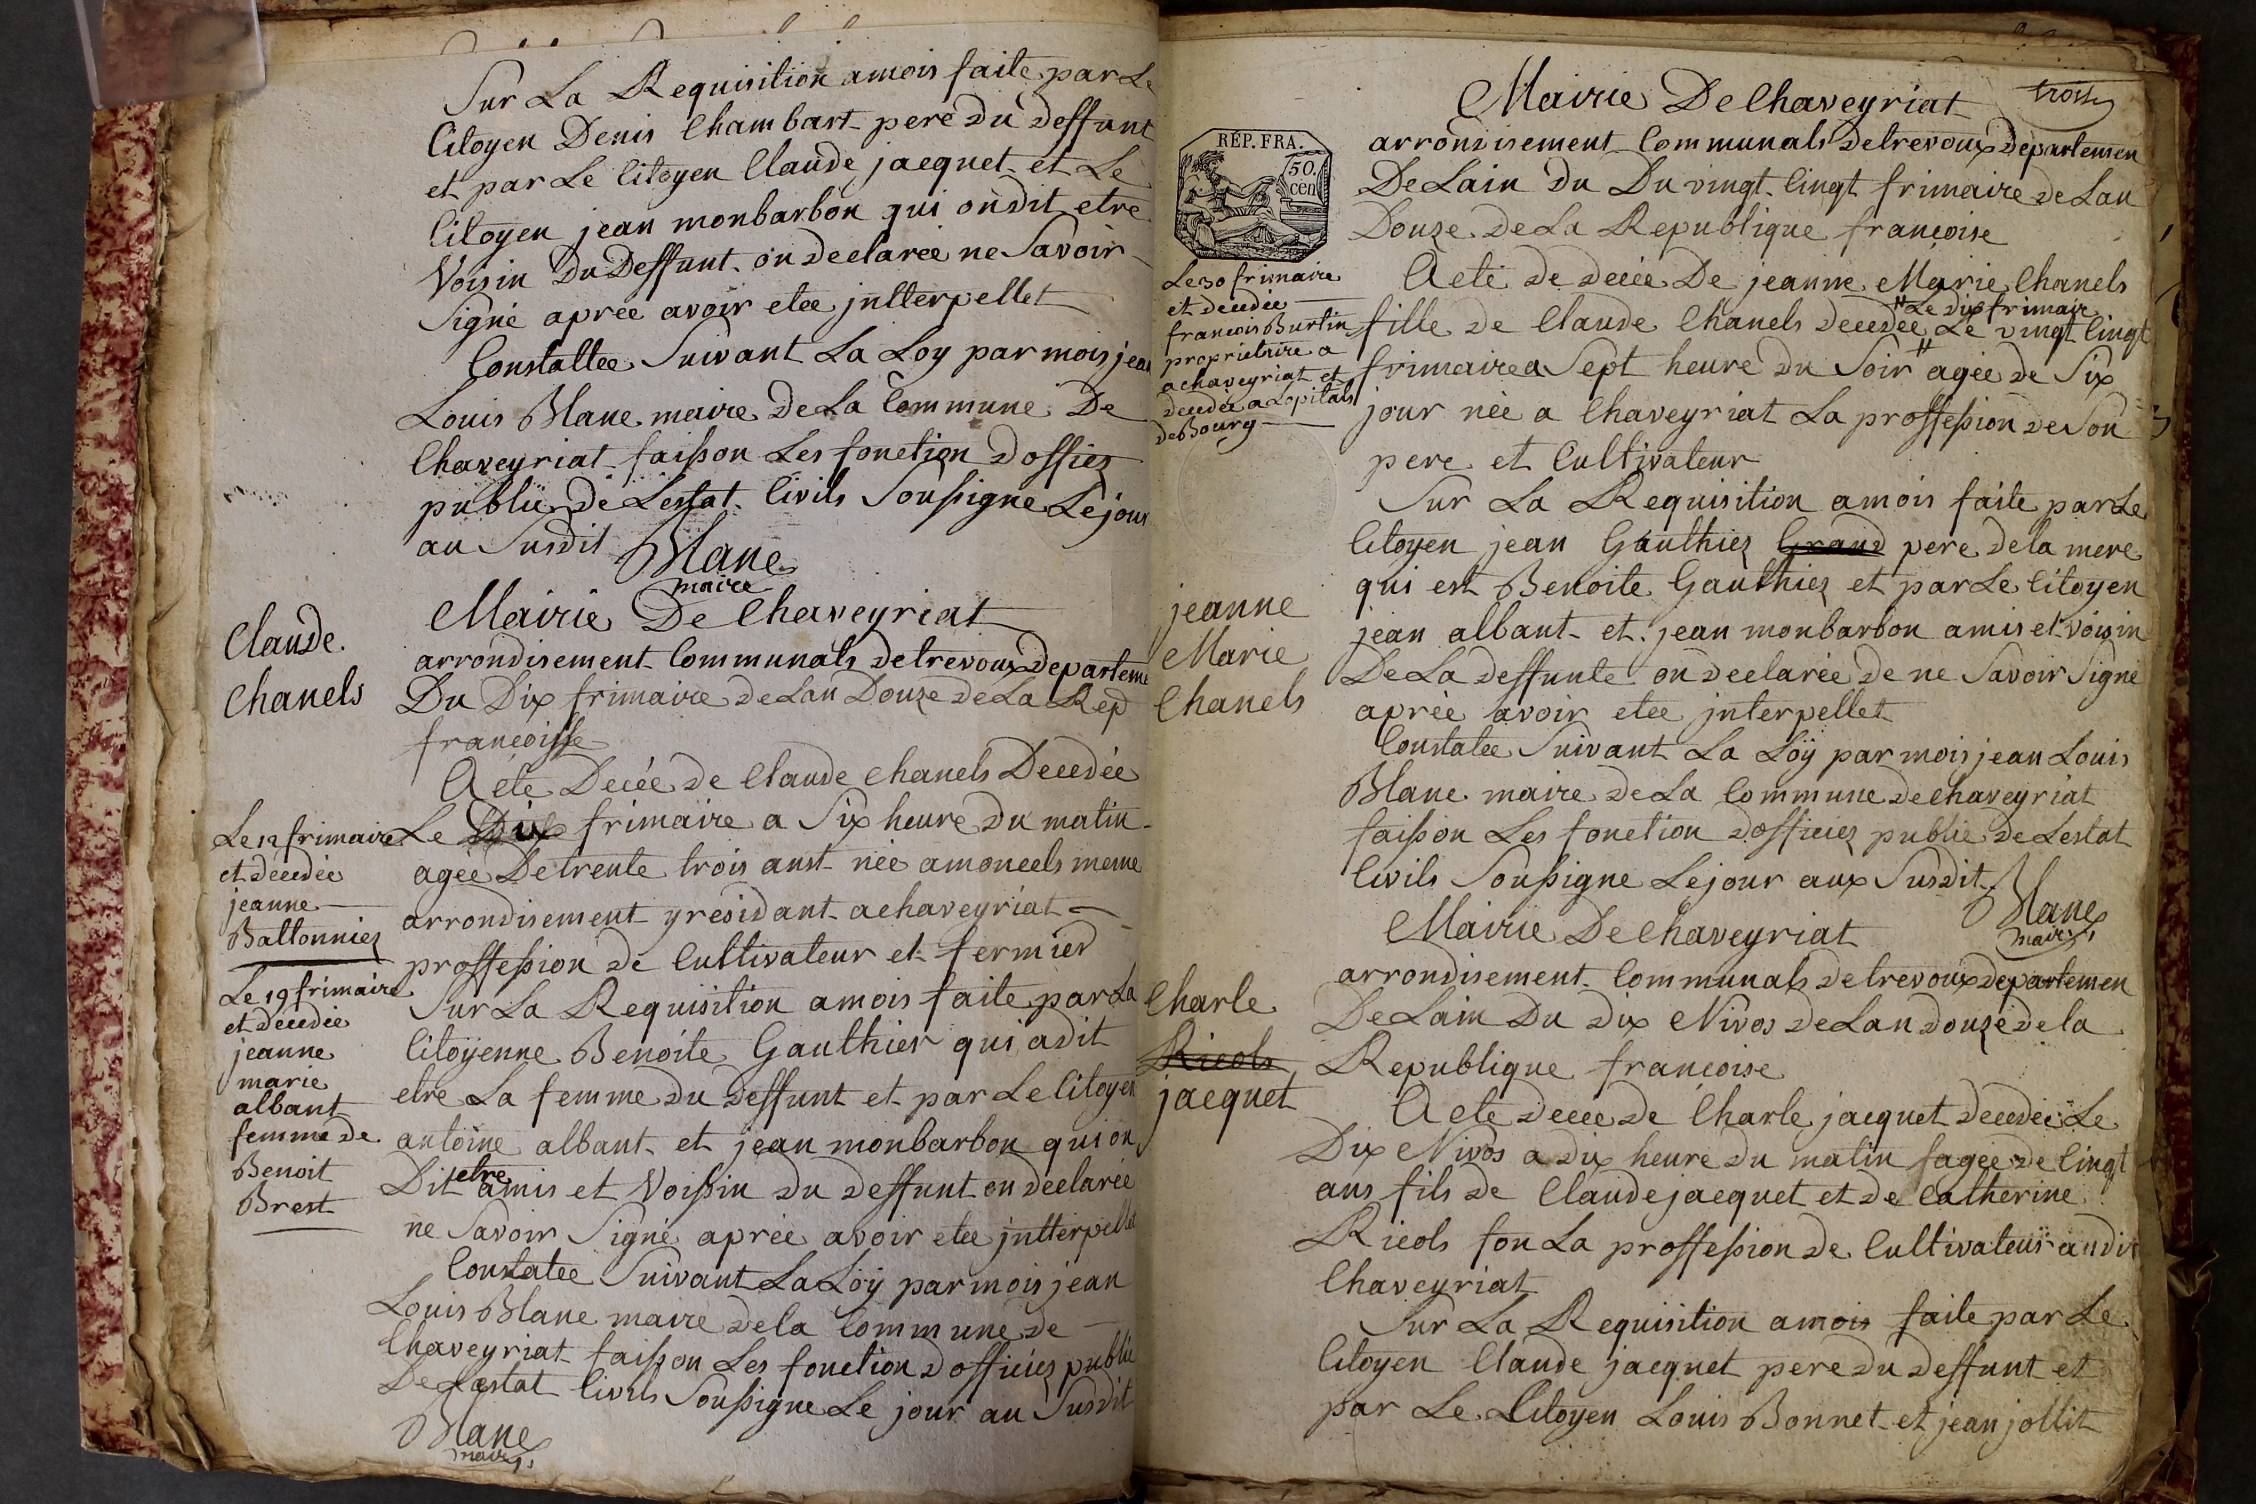 Sur La Requisition a mois faite par Le
Citoyen Denis Chambart pere du deffunt
et par Le Citoyen Claude jacquet et Le
Citoyen jean monbarbon qui on dit etre
Voisin du Deffunt on declarée ne Savoir
Signé aprée avoir etee jntterpellet
Constattee Suivant La Loy par mois jean
Louis Blanc maire de La Commune De
Chaveyriat faisson Les fonction d officz
publiz de Lestat Civils Soussigne Le jour
au Susdit Blanc
maire
Mairie De Chaveyriat
Claude
Chanels
arrondisement Communals de trevoux departeme
Du Dix frimaire de Lan Douze de La Rep
francoisse
Acte Decée de Claude Chanels Decedée
Le Dix frimaire a Six heure du matin
agée De trente trois anst née a moncels meme
arrondisement y residant a chaveyriat
proffession de Cultivateur et fermier
Le 12 frimaire
et decedée
jeanne
Battonniez
Le 19 frimaire
et decedée
jeanne
marie
albant
femme de
Benoit
Brest
Sur La Requisition a mois faite par La
Citoÿenne Benoite Gauthier qui a dit
etre La femme du deffunt et par Le Citoyen
antoine albant et jean monbarbon qui on
Dit etre amis et Voissin du deffunt on declarée
ne Savoir Signé aprée avoir etee jntterpellet
Constatee Suivant La Loÿ par mois jean
Louis Blanc maire de la Commune de
Chaveyriat faisson Les fonction d officiez publie
De Lestat Civils Soussigne Le jour au Susdit
Blanc
maire
Mairie De Chaveyriat
trois
REP. FRA.
50.
cen
arrondisement Communals De trevoux departemen
De Lain du Du vingt Cinqt frimaire de Lan
Douze de La Republique francoise
Le 30 frimaire
et decedée
francois Burtin
proprietaire a
a chaveyriat et
decedée a Lopitals
de Bourg
Acte de decée De jeanne Marie Chanels
fille de Claude Chanels decedée Le vingt Cinqt
" Le dix frimair
frimaire a Sept heure du Soir " agée de Six
jour née a Chaveyriat La proffession de Son
pere et Cultivateur
Sur La Requisition a mois faite par Le
Citoyen jean Gauthiez Grand pere de la mere
qui est Benoite Gauthiez et par Le Citoyen
jean albant et jean monbarbon amis et voisin
De La deffunte on declarée de ne Savoir Signé
aprée avoir etee jnterpellet
jeanne
Marie
Chanels
Constatee Suivant La Loÿ par mois jean Louis
Blanc maire de La Commune de chaveyriat
faisson Les fonction d officiez publie de Lestat
Civils Soussigne Le jour aux Susdit
Blanc
maire
Mairie De Chaveyriat
arrondisement Communals de trevoux departemen
De Lain Du dix Nivos de Lan douze de la
Republique francoise
Charle
Ricols
jacquet
Acte decee de Charle jacquet decedée Le
Dix Nivos a dix heure du matin agée de Cinqt
ans fils de Claude jacquet et de Catherine
Ricols fon La proffession de Cultivateur audit
Chaveyriat
Sur La Requisition a mois faite par Le
Citoyen Claude jacquet pere du deffunt et
par Le Citoyen Louis Bonnet et jean jollit